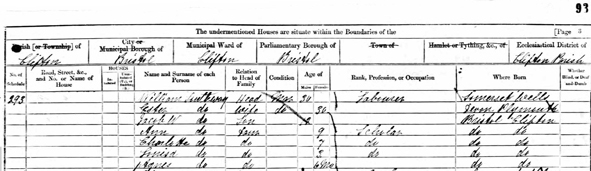 93
The undermentioned Houses are situate within the Boundaries of the [Page 3
Parish [or Township] of City or Municipal Borough of Municipal Ward of Parliamentary Borough of Town of Hamlet or Tything, &c., of Ecclesiastical District of
Clifton Bristol Clifton Bristol Clifton Parish
No. of Schedule Road, Street, &c., and No. or Name of House HOUSES Name and Surname of each Person Relation to Head of Family Condition Age of Rank, Profession, or Occupation Where Born Whether Blind, or Deaf and Dumb
Males Females
293 William Head Mar Labourer Somerset Wells
do Wife do 30 Devon Plymouth
Jacob W do Son Bristol Clifton
Ann do 9 Scholar do do
Charlotte do do 7 do do do
Louisa do do 3 do do do
Agnes do do 6 Mo do do